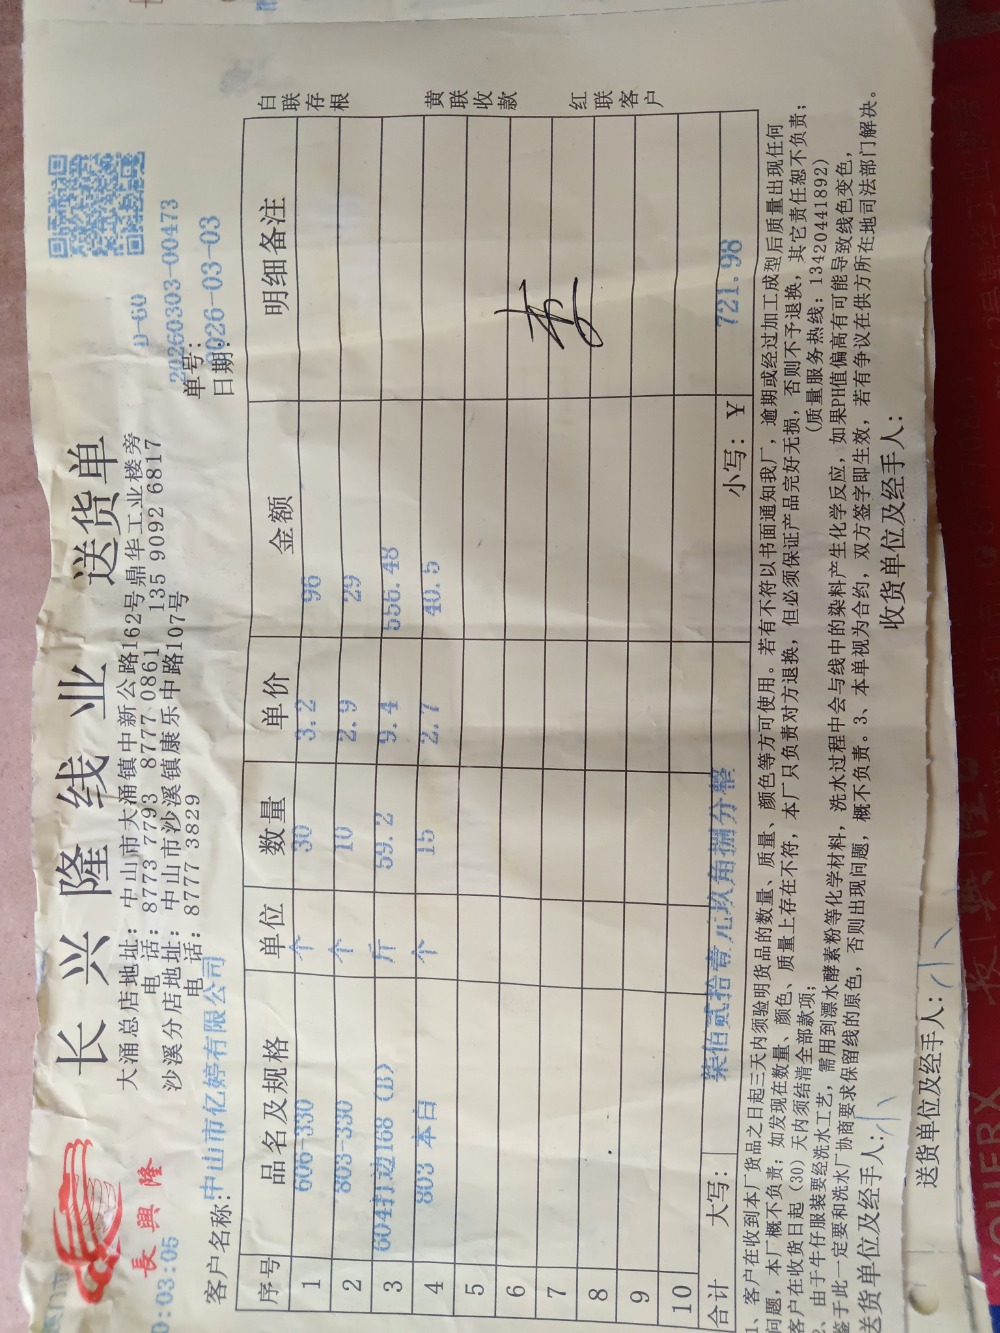 長興隆
0:03:05
长兴隆线业 送货单
D-60
大涌总店地址:中山市大涌镇中新公路162号鼎华工业楼旁
电 话:8773 7793 8777 0861 135 9092 6817
沙溪分店地址:中山市沙溪镇康乐中路107号
电 话:8777 3829
单号:20260303-00473
客户名称:中山市亿婷有限公司
日期:2026-03-03
序号 品名及规格 单位 数量 单价 金额 明细备注
1 606-330 个 30 3.2 96
2 803-330 个 10 2.9 29
3 604打边168 (B) 斤 59.2 9.4 556.48
4 803 本白 个 15 2.7 40.5
5
6
7
8
9
10
合计 大写: 柒佰贰拾壹元玖角捌分整 小写:¥ 721.98
白联存根
黄联收款
红联客户
1、客户在收到本厂货品之日起三天内须验明货品的数量、质量、颜色等方可使用。若有不符以书面通知我厂,逾期或经过加工成型后质量出现任何
问题,本厂概不负责;如发现在数量、颜色、质量上存在不符,本厂只负责对方退换,但必须保证产品完好无损,否则不予退换,其它责任恕不负责;
客户在收货日起(30)天内须结清全部款项;
(质量服务热线:13420441892)
2、由于牛仔服装要经洗水工艺,需用到漂水酵素粉等化学材料,洗水过程中会与线中的染料产生化学反应,如果PH值偏高有可能导致线色变色,
鉴于此一定要和洗水厂协商要求保留线的原色,否则出现问题,概不负责。3、本单视为合约,双方签字即生效,若有争议在供方所在地司法部门解决。
送货单位及经手人:小 收货单位及经手人:
送货单位及经手人:小